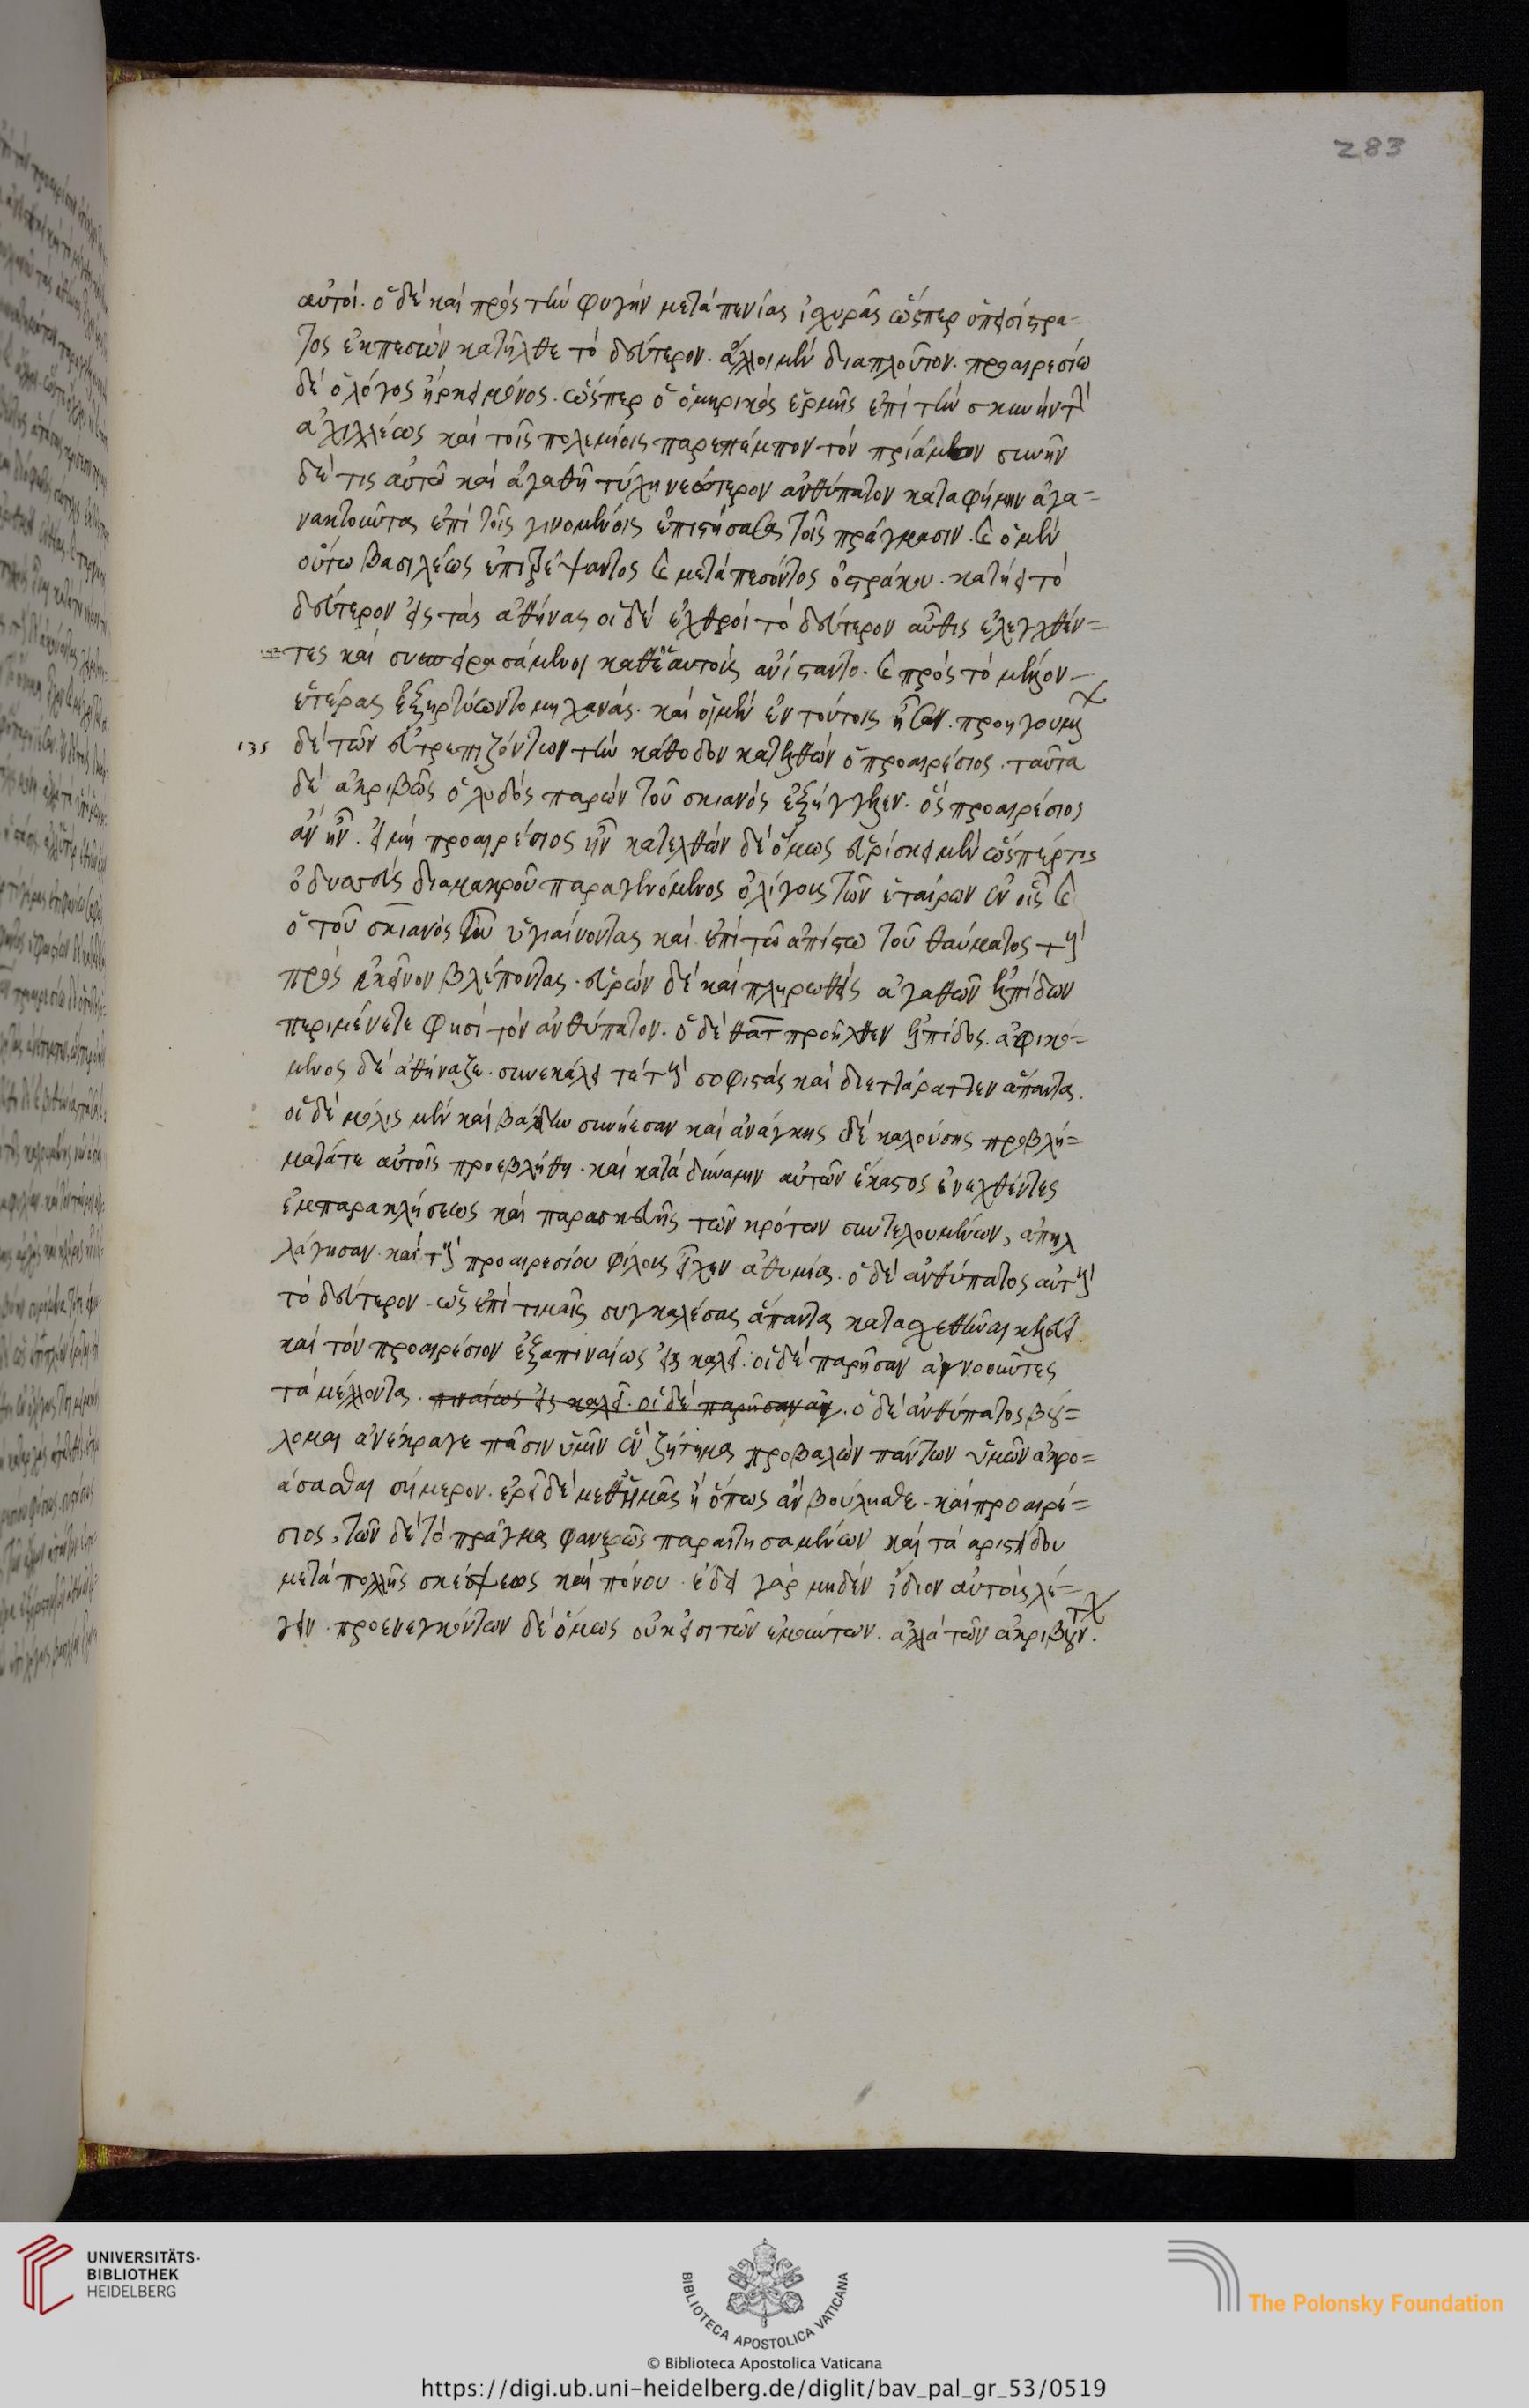 283
αὐτοί. ὁ δὲ καὶ πρὸς τὴν φυγὴν μετὰ πενίας ἰσχυρᾶς ὥσπερ ὁ πεισίστρα=
τος ἐκπεσὼν κατῆλθε τὸ δεύτερον. ἄλλοι μὲν διὰ πλοῦτον. προαιρεσίῳ
δὲ ὁ λόγος ἠρκει μόνος. ὥσπερ ὁ ὁμηρικὸς ἑρμῆς ἐπὶ τὴν σκηνὴν τοῦ
ἀχιλλέως καὶ τοῖς πολεμίοις παρεπέμπον τὸν πρίαμον συνῆν
δέ τις αὐτῷ καὶ ἀγαθὴ τύχη νεώτερον ἀνθύπατον κατὰ φήμην ἀγα=
νακτοῦντας ἐπὶ τοῖς γινομένοις ἐπιστήσασα τοῖς πράγμασιν. καὶ ὁ μὲν
οὕτω βασιλέως ἐπιτρέψαντος καὶ μεταπεσόντος ὀστράκου. κατήει τὸ
δεύτερον εἰς τὰς ἀθήνας οἱ δὲ ἐχθροὶ τὸ δεύτερον αὖθις ἐλεγχθέν=
τες καὶ συνεπφρασάμενοι καθ' ἑαυτοὺς ἀνίσταντο. καὶ πρὸς τὸ μέλλον
ἑτέρας ἐξηρτύωντο μηχανάς. καὶ οἱ μὲν ἐν τούτοις ἦσαν. προηγουμ
135 δὲ τῶν εὐτρεπιζόντων τὴν κάθοδον κατελθὼν ὁ προαιρέσιος. ταῦτα
δὲ ἀκριβῶς ὁ λυδὸς παρὼν τουσκιανὸς ἐξήγγελλεν. ὃς προαιρέσιος
ἂν ἦν. εἰ μὴ προαιρέσιος ἦν κατελθὼν δὲ ὅμως εὑρίσκει μὲν ὥσπέρ τις
ὀδυσσεὺς διὰ μακροῦ παραγενόμενος ὀλίγους τῶν ἑταίρων ἐν οἷς καὶ
ὁ τουσκιανὸς ἦν ὑγιαίνοντας καὶ ἐπὶ τῷ ἀπίστῳ τοῦ θαύματος τοὺς
πρὸς ἐκεῖνον βλέποντας. εὑρὼν δὲ καὶ πληρωθεὶς ἀγαθῶν ἐλπίδων
περιμένετε φησὶ τὸν ἀνθύπατον. ὁ δὲ θᾶτ προῆλθεν ἐλπίδος. ἀφικό=
μενος δὲ ἀθήναζε. συνεκάλει τε τοὺς σοφιστὰς καὶ διεττάραττεν ἅπαντα.
οἱ δὲ μόλις μὲν καὶ βάδην συνῄεσαν καὶ ἀνάγκης δὲ καλούσης προβλή=
ματά τε αὐτοῖς προεβλήθη. καὶ κατὰ δύναμιν αὐτῶν ἕκαστος ἐνεχθέντες
ἐμπαρακλήσεως καὶ παρασκευῆς τῶν κρότων συντελουμένων, ἀπηλ
λάγησαν. καὶ τοὺς προαιρεσίου φίλους εἶχεν ἀθυμία. ὁ δὲ ἀνθύπατος αὐτοὺς
τὸ δεύτερον. ὡς ἐπὶ τιμαῖς συγκαλέσας ἅπαντας κατασχεθῆναι κελεύει.
καὶ τὸν προαιρέσιον ἐξαπιναίως εἰς καλεῖ. οἱ δὲ παρῆσαν ἀγνοοῦντες
τὰ μέλλοντα. πιναίως εἰς καλεῖ. οἱ δὲ παρῆσαν ἀγ. ὁ δὲ ἀνθύπατος βού=
λομαι ἀνέκραγε πᾶσιν ὑμῖν ἓν ζήτημα προβαλὼν πάντων ὑμῶν ἀκρο=
άσασθαι σήμερον. ἐρεῖ δὲ μεθ' ἡμᾶς ἢ ὅπως ἂν βούλησθε. καὶ προαιρέ=
σιος, τῶν δὲ τὸ πρᾶγμα φανερῶς παραιτησαμένων καὶ τὰ ἀριστείδου
μετὰ πολλῆς σκέψεως καὶ πόνου. ἔδει γὰρ μηδὲν ἴδιον αὐτοὺς λέ=
γειν. προενεγκόντων δὲ ὅμως οὐκ εἰσι τῶν ἐμούντων. ἀλλὰ τῶν ἀκριβούντ.
UNIVERSITÄTS-
BIBLIOTHEK
HEIDELBERG
BIBLIOTECA APOSTOLICA VATICANA
The Polonsky Foundation
© Biblioteca Apostolica Vaticana
https://digi.ub.uni-heidelberg.de/diglit/bav_pal_gr_53/0519